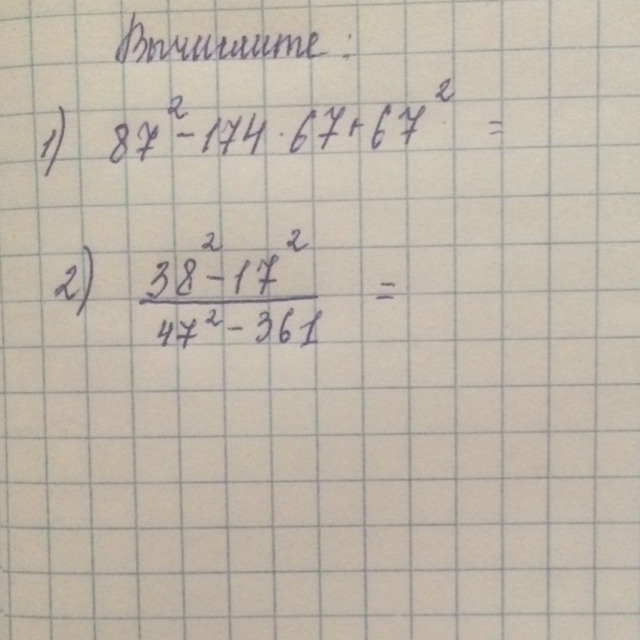 Вычислите:
1) 87² - 174 · 67 + 67² =
2) 38² - 17² =
47² - 361